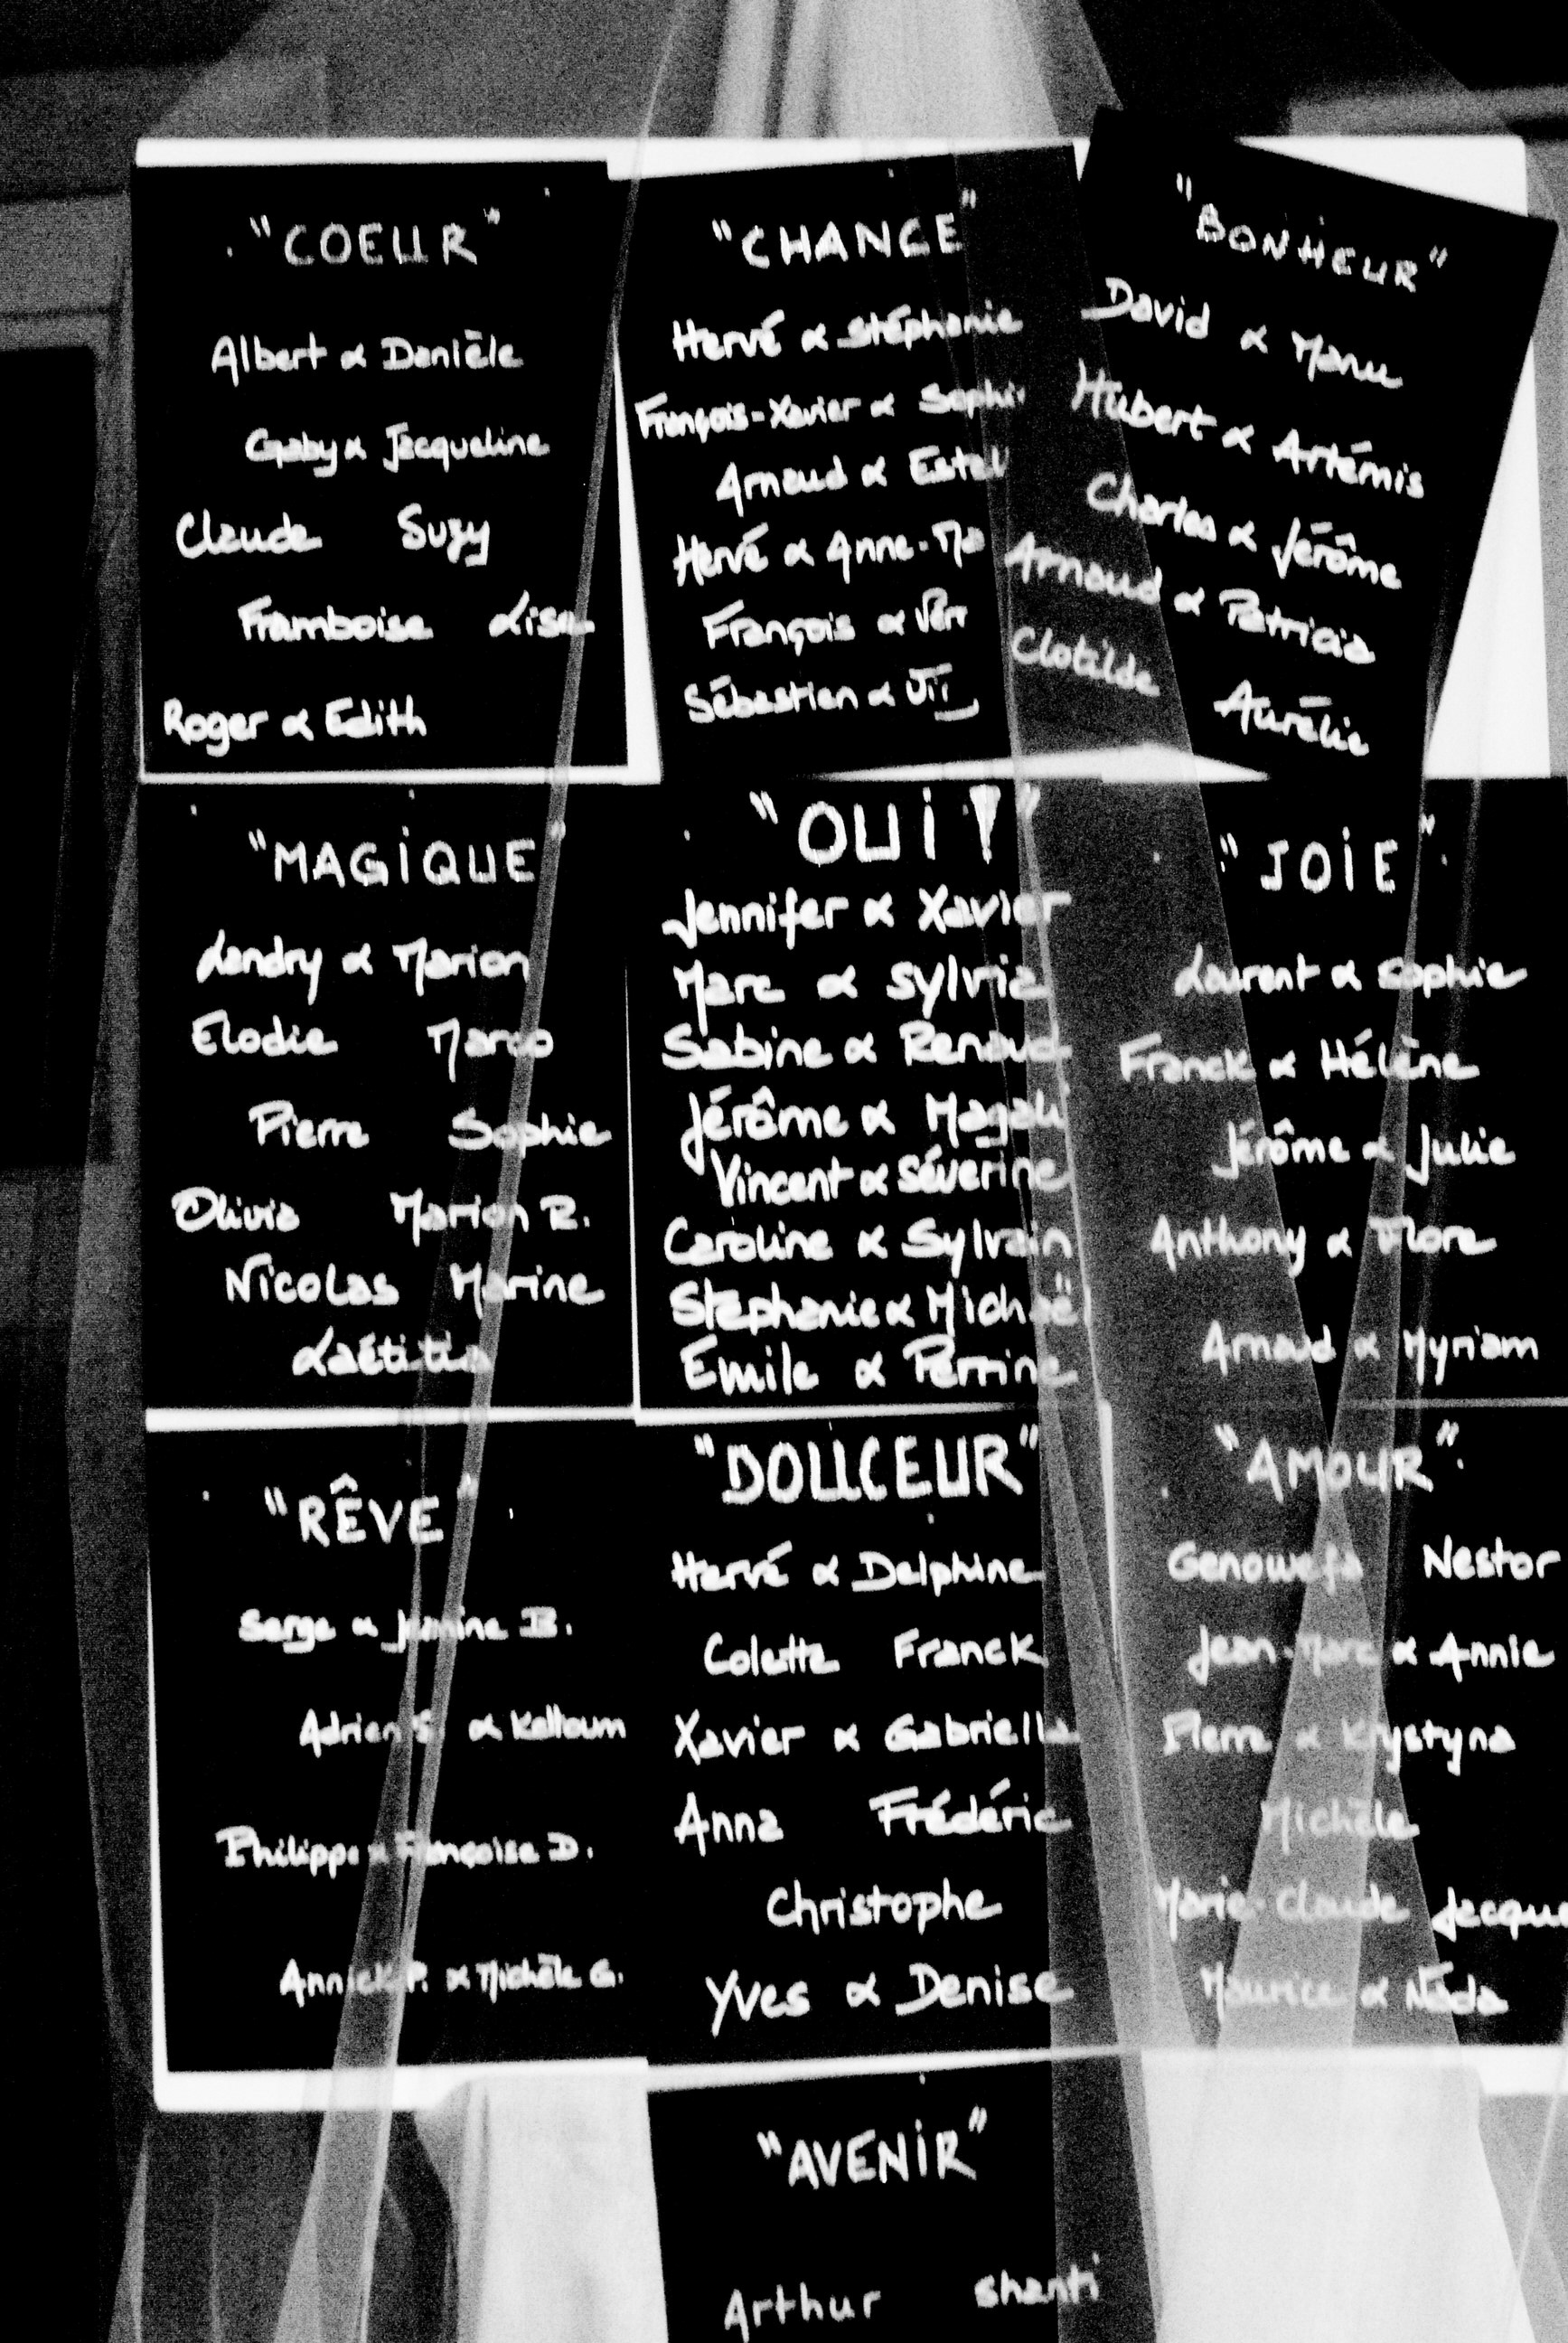 "COEUR"
Albert & Danièle
Gaby & Jacqueline
Claude Suzy
Framboise Lise
Roger & Edith
"CHANCE"
Hervé & Stéphanie
François-Xavier & Sophi
Arnaud & Estel
Hervé & Anne-Ma
François & Vér
Sébastien &
"BONHEUR"
David & Manu
Hubert & Artémis
Charles & Jérôme
Arnaud & Patricia
Clotilde Aurélie
"MAGIQUE"
Landry & Marion
Elodie Marco
Pierre Sophie
Olivia Marion R.
Nicolas Marine
Laëtitia
"OUI!"
Jennifer & Xavier
Marc & Sylvia
Sabine & Renaud
Jérôme & Magali
Vincent & Séverine
Caroline & Sylvain
Stéphanie & Michaë
Emile & Perrine
"JOIE"
Laurent & Sophie
Franck & Hélène
Jérôme & Julie
Anthony & Flore
Arnaud & Myriam
"RÊVE"
Serge & Jeanine B.
Adrien S. & Keltoum
Philippe & Françoise D.
Annick P. & Michèle G.
"DOUCEUR"
Hervé & Delphine
Colette Franck
Xavier & Gabriella
Anna Frédéric
Christophe
Yves & Denise
"AMOUR"
Genowefa Nestor
Jean-Marc & Annie
Pierre & Krystyna
Michèle
Marie-Claude Jacque
Maurice & Nada
"AVENIR"
Arthur Shanti